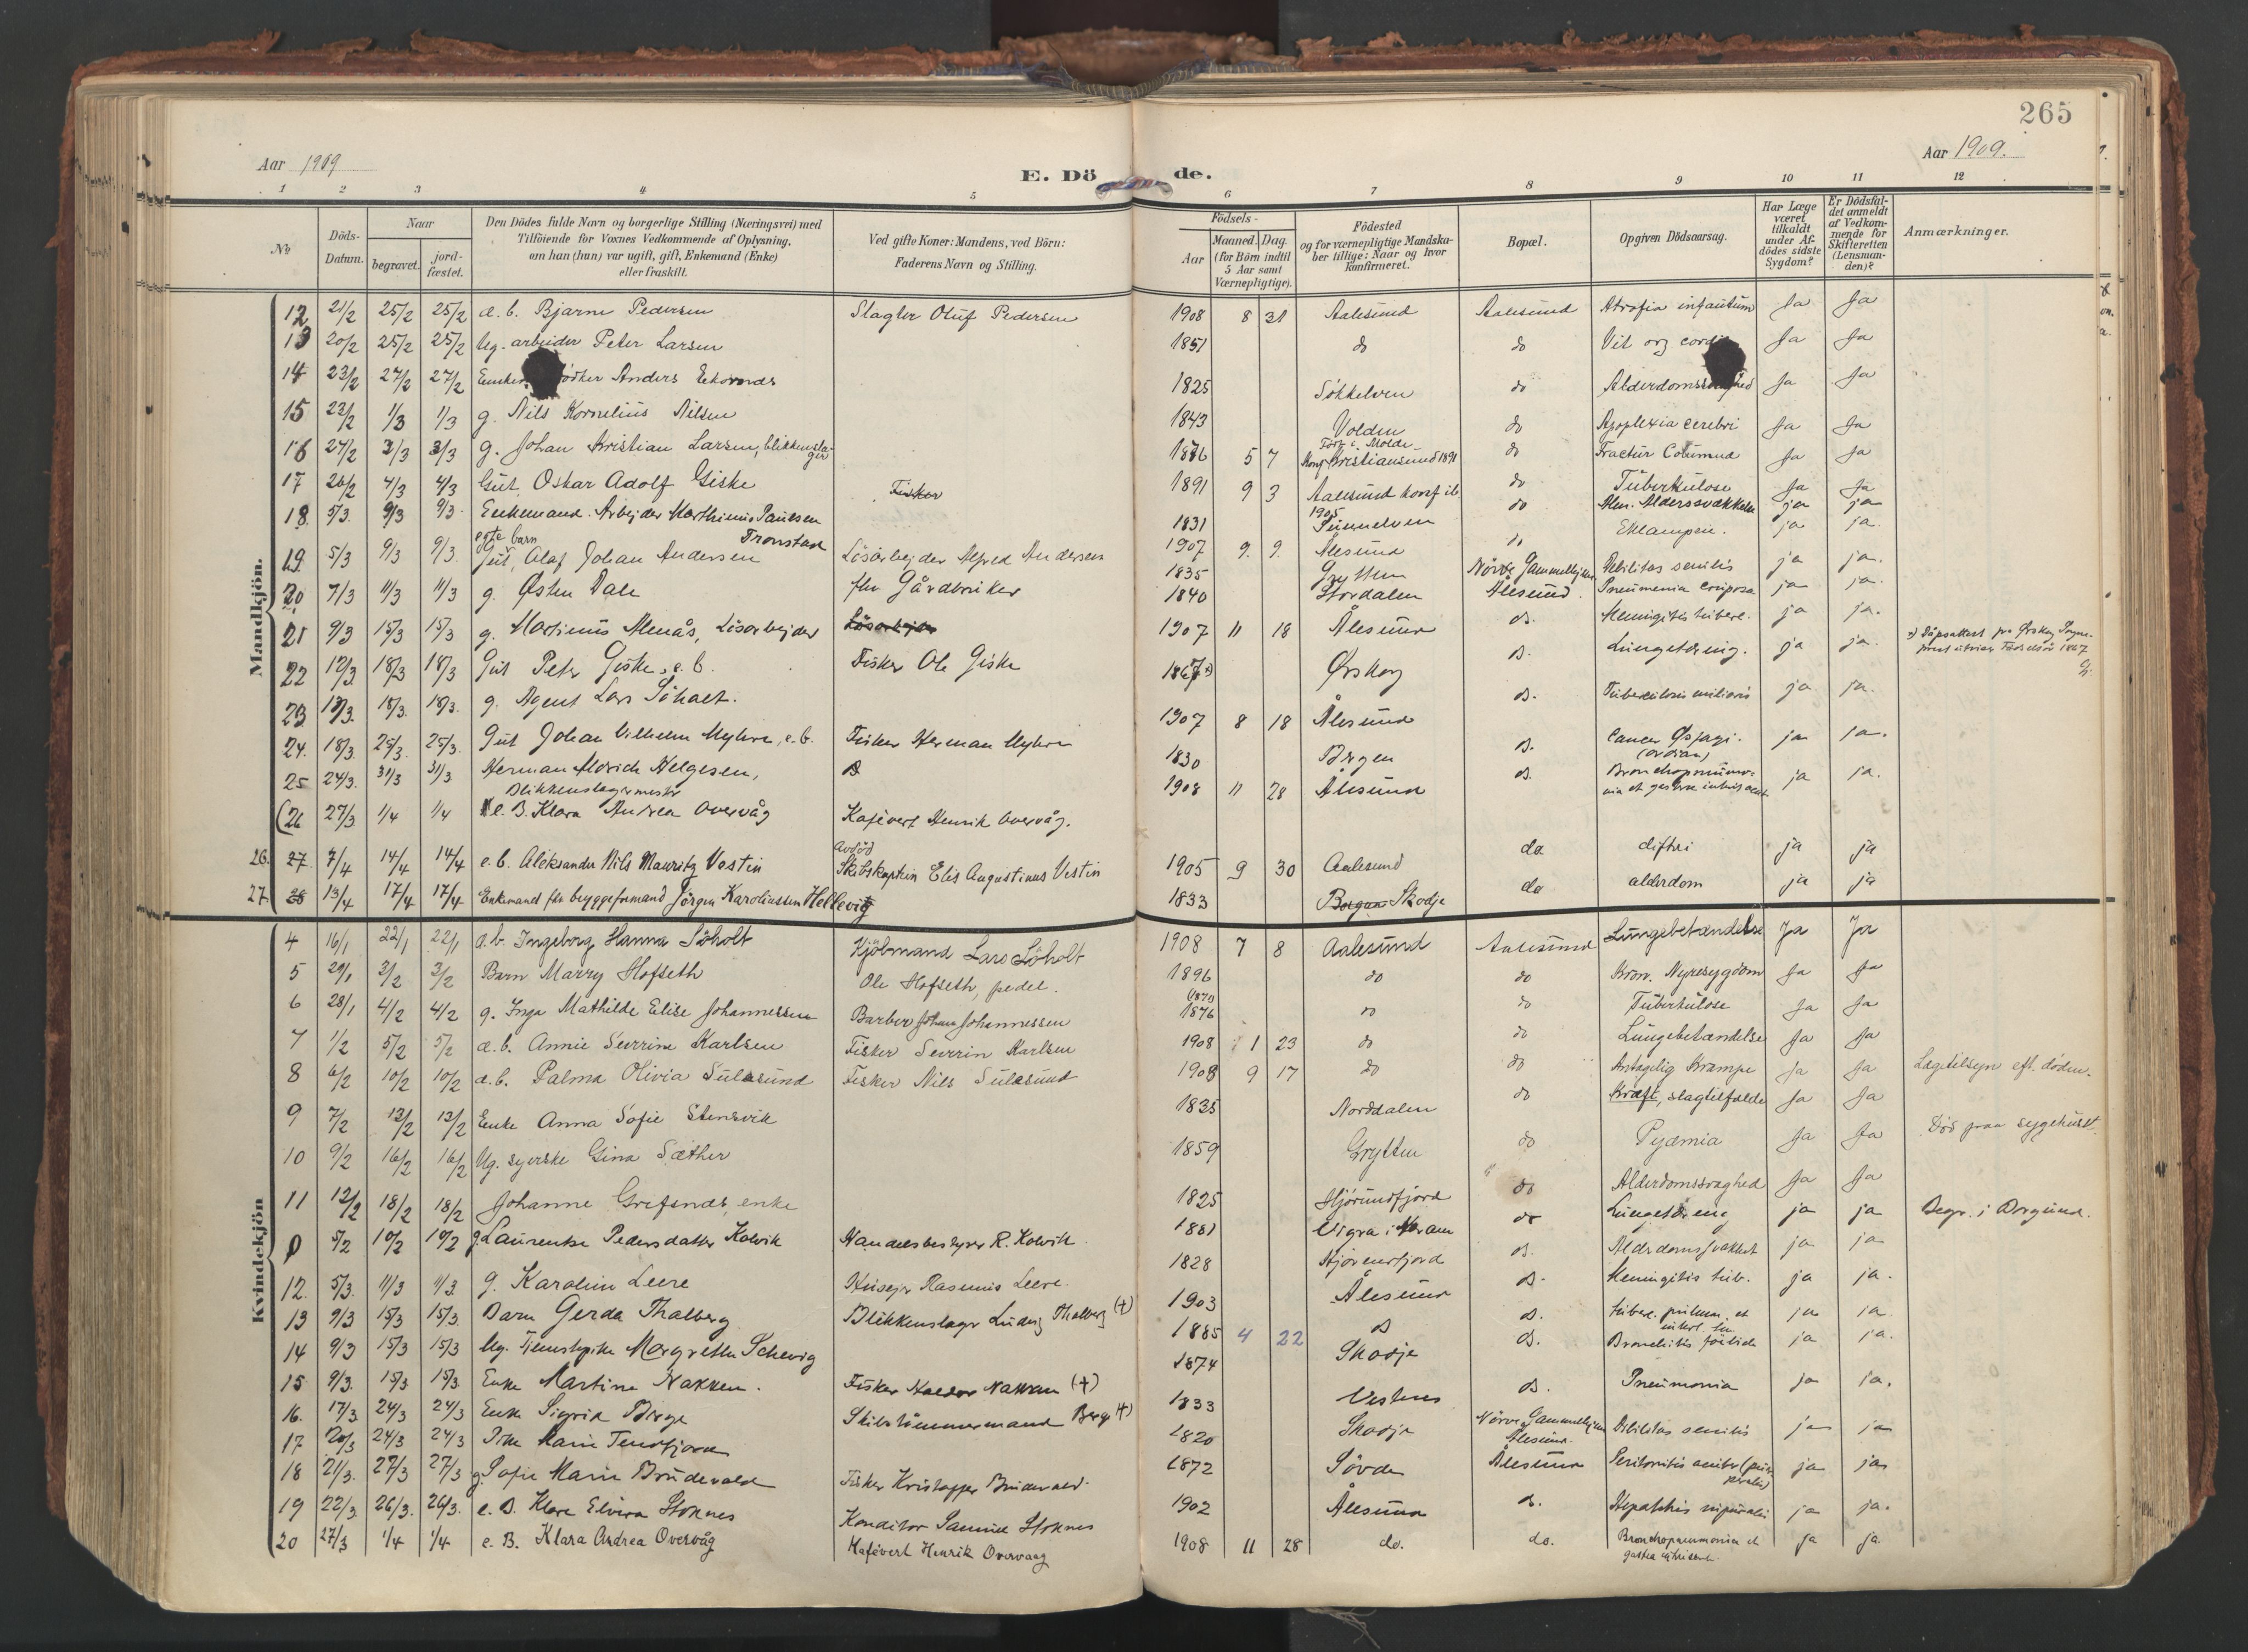 265
Aar 1909
E. Dö de.
Aar 1909.
1 2 3 4 5 6 7 8 9 10 11 12
No
Döds-Datum.
Naar
begravet.
jord-fæstet.
Den Dödes fulde Navn og borgerlige Stilling (Næringsvei) med
Tilföiende for Voxnes Vedkommende af Oplysning,
om han (hun) var ugift, gift, Enkemand (Enke)
eller fraskilt.
Ved gifte Koner: Mandens, ved Börn:
Faderens Navn og Stilling.
Födsels-
Aar
Maaned. Dag.
(for Börn indtil
5 Aar samt
Værnepligtige).
Födested
og for værnepligtige Mandska-
ber tillige: Naar og hvor
konfirmeret.
Bopæl.
Opgiven Dödsaarsag.
Har Læge
været
tilkaldt
under Af-
dödes sidste
Sygdom?
Er Dödsfal-
det anmeldt
af Vedkom-
mende for
Skifteretten
(Lensman-
den)?
Anmærkninger.
Mandkjön.
12 21/2 25/2 25/2 æ. b. Bjarne Pedersen Slagter Oluf Pedersen 1908 8 31 Aalesund Aalesund Atrofia infantum Ja Ja
13 20/2 25/2 25/2 Ug. arbeider Peter Larsen 1851 do do Vit org Ja Ja
14 23/2 27/2 27/2 Anders Ekornæs 1825 Sökkelven do Ja Ja
15 22/2 1/3 1/3 g. Nils Kornelius Nilsen 1843 Volden do Apoplexia cerebri Ja Ja
16 24/2 3/3 3/3 g. Johan Kristian Larsen, blikkenslager 1876 5 7 Molde Konf Kristiansund 1891 do Fractur Ja Ja
17 26/2 4/3 4/3 Gut Oskar Adolf Giske Fisker 1891 9 3 Aalesund konf ib. 1905 do Tuberkulose Ja Ja
18. 5/3. 9/3 9/3. Enkemand. Arbejder Marthinus Paulsen Tronstad 1831 Sunnelven do Alm. Alderssvækkelse ja ja
19. 5/3 9/3 9/3. egte barn Gut, Olaf Johan Andersen Lösarbejder Alfred Andersen 1907 9. 9. Ålesund Eklampsi. ja ja.
20 7/3 11/3 11/3 g. Østen Dale fhv Gårdbruker 1835 Grytten Nörve Gammelhjem Debilitas senilis ja ja.
21 9/3 15/3 15/3 g. Martinus Almås, Lösarbejder 1840 Stordalen Ålesund. Pneumonia ja ja.
22 12/3. 18/3 18/3 Gut Peter Giske, e. b. Fisker Ole Giske 1907 11 18 Ålesund d. Meningitis tuberc. ja ja.
23 13/3. 18/3. 18/3. g. Agent Lars Söholt. 1867 x) Ørskog d. Lungetæring. ja ja. x) Dåpsattest fra Ørskog 1867
24. 18/3. 25/3. 25/3. Gut Johan Vilhelm Myhre, e. b. Fisker Herman Myhre 1907 8 18 Ålesund d. Tuberculosis miliaris ja ja.
25 24/3. 31/3 31/3 Herman Aldrich Helgesen, Blikkenslagermester 1830 Bergen d. Cancer ja ja.
(26 27/3 1/4 1/4 e. B. Klara Andrea Overvåg Kafévert Henrik Overvåg. 1908 11 28 Ålesund d. Bronchopneumonia et ja ja.
26. 27. 7/4 14/4 14/4 e. b. Aleksander Nils Mauritz Vestin avdød Skibskaptein Elis Augustinus Vestin 1905 9 30 Aalesund do. difteri ja ja
27. 28 13/4 17/4 17/4 Enkemand fhv bryggeformand Jörgen Karoliussen Hellevig 1833 Skodje do alderdom ja ja
Kvindekjön
4 16/1 22/1 22/1 æ. b. Ingeborg Hanna Söholt Kjöbmand Lars Söholt 1908 7 8 Aalesund Aalesund Lungebetændelse Ja Ja
5 29/1 3/2 3/2 Barn Marry Hofseth Ole Hofseth, pedel. 1896 do do Kron. Nyresygdom Ja Ja
6 28/1 4/2 4/2 g. Inga Mathilde Elise Johannessen Barber Johan Johannessen 1876 do do Tuberkulose Ja Ja
7 1/2 5/2 5/2 æ. b. Annie Severine Karlsen Fisker Severin Karlsen 1908 1 23 do do Lungebetændelse Ja Ja
8 6/2 10/2 10/2 æ. b. Palma Olivia Sulesund Fisker Nils Sulesund 1908 9 17 do do Antagelig Krampe Ja Ja Lægetilsyn eft. döden.
9 7/2 13/2 13/2 Enke Anna Sofie Stensvik 1835 Norddalen do Kræft, slagtilfælde Ja Ja
10 9/2 16/2 16/2 Ug. syerske Gina Sæther 1859 Grytten do Pyæmia Ja Ja Död paa sygehuset.
11 12/2 18/2 18/2 Johanne Grefsnes, enke 1825 Hjörundfjord do Alderdomssvaghed Ja Ja
0 5/2 10/2 10/2 g. Laurentse Pedersdatter Kolvik Handelsbestyrer R. Kolvik 1881 Vigra i Haram do Lungetæring ja ja Begr. i Borgund.
12. 5/3. 11/3 11/3. g. Karolin Leere Huseier Rasmus Leere. 1828 Hjörundfjord d. Alderdomssvakhet ja ja
13 9/3 15/3 15/3. Barn Gerda Thalberg Blikkenslager Ludvig Thalberg (+) 1903 Ålesund d. Meningitis tub. ja ja.
14 9/3 15/3 15/3 Ug. Tjenstepike Margrethe Schevig 1885 4 22 d d. ja ja
15 9/3. 15/3 15/3. Enke Martine Nakken. Fisker Nakken (+) 1874 Skodje d. ja ja.
16. 17/3. 24/3 24/3 Enke Sigrid Berge Skibstömmermand Berge (+) 1833 Vestnes d. Pneumonia ja ja.
17 20/3 24/3 24/3 Pike Marie Tenfjord 1820 Skodje Nörve Gammelhjem Ålesund. Debilitas senilis ja ja
18 21/3. 27/3 27/3 g. Sofie Marie Brudevold Fisker Kristoffer Brudevold. 1872 Sövde Ålesund Peritonitis ja ja
19 22/3. 26/3. 26/3. e. B. Klara Elvira Stoknes Konditor Samuel Stoknes 1902 Ålesund d. ja ja.
20 27/3 1/4 1/4 e. B. Klara Andrea Overvåg Kafévert Henrik Overvaag 1908 11 28 do. do. Bronchopneumonia et ja ja.